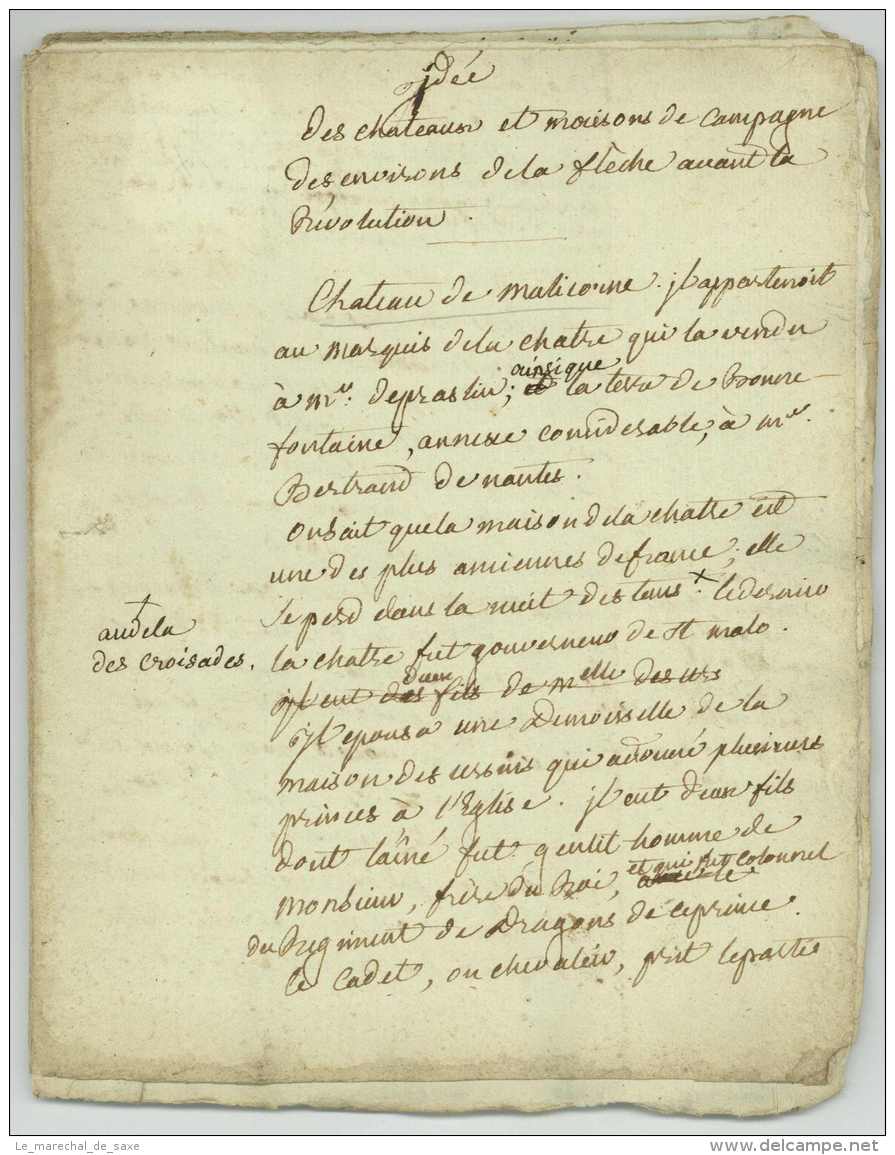 jdée
des chateaux et maisons de campagne
des environs de la flèche avant la
Révolution.
Chateau de malicorne. jl appartenoit
au marquis de la chatre qui la vendu
à mr. de praslin; ainsi que
la terre de Bonne
fontaine, annexe considerable, à mr.
Bertrand de nantes.
On sait que la maison de la chatre est
une des plus anciennes de france; elle
se perd dans la nuit des tems. x le dernier
+
au dela
des croisades.
la chatre fut gouverneur de St malo.
jl eut deux fils de melle des urs
jl epousa une Demoiselle de la
maison des ursins qui a donné plusieurs
princes à l'Eglise. jl eut deux fils
dont l'aîné fut gentil homme de
Monsieur, frère du Roi, et qui fut colonnel
du Regiment de Dragons de ce prince.
Le Cadet, ou chevalier, prit le parti
Le_marechal_de_saxe
www.delcampe.net